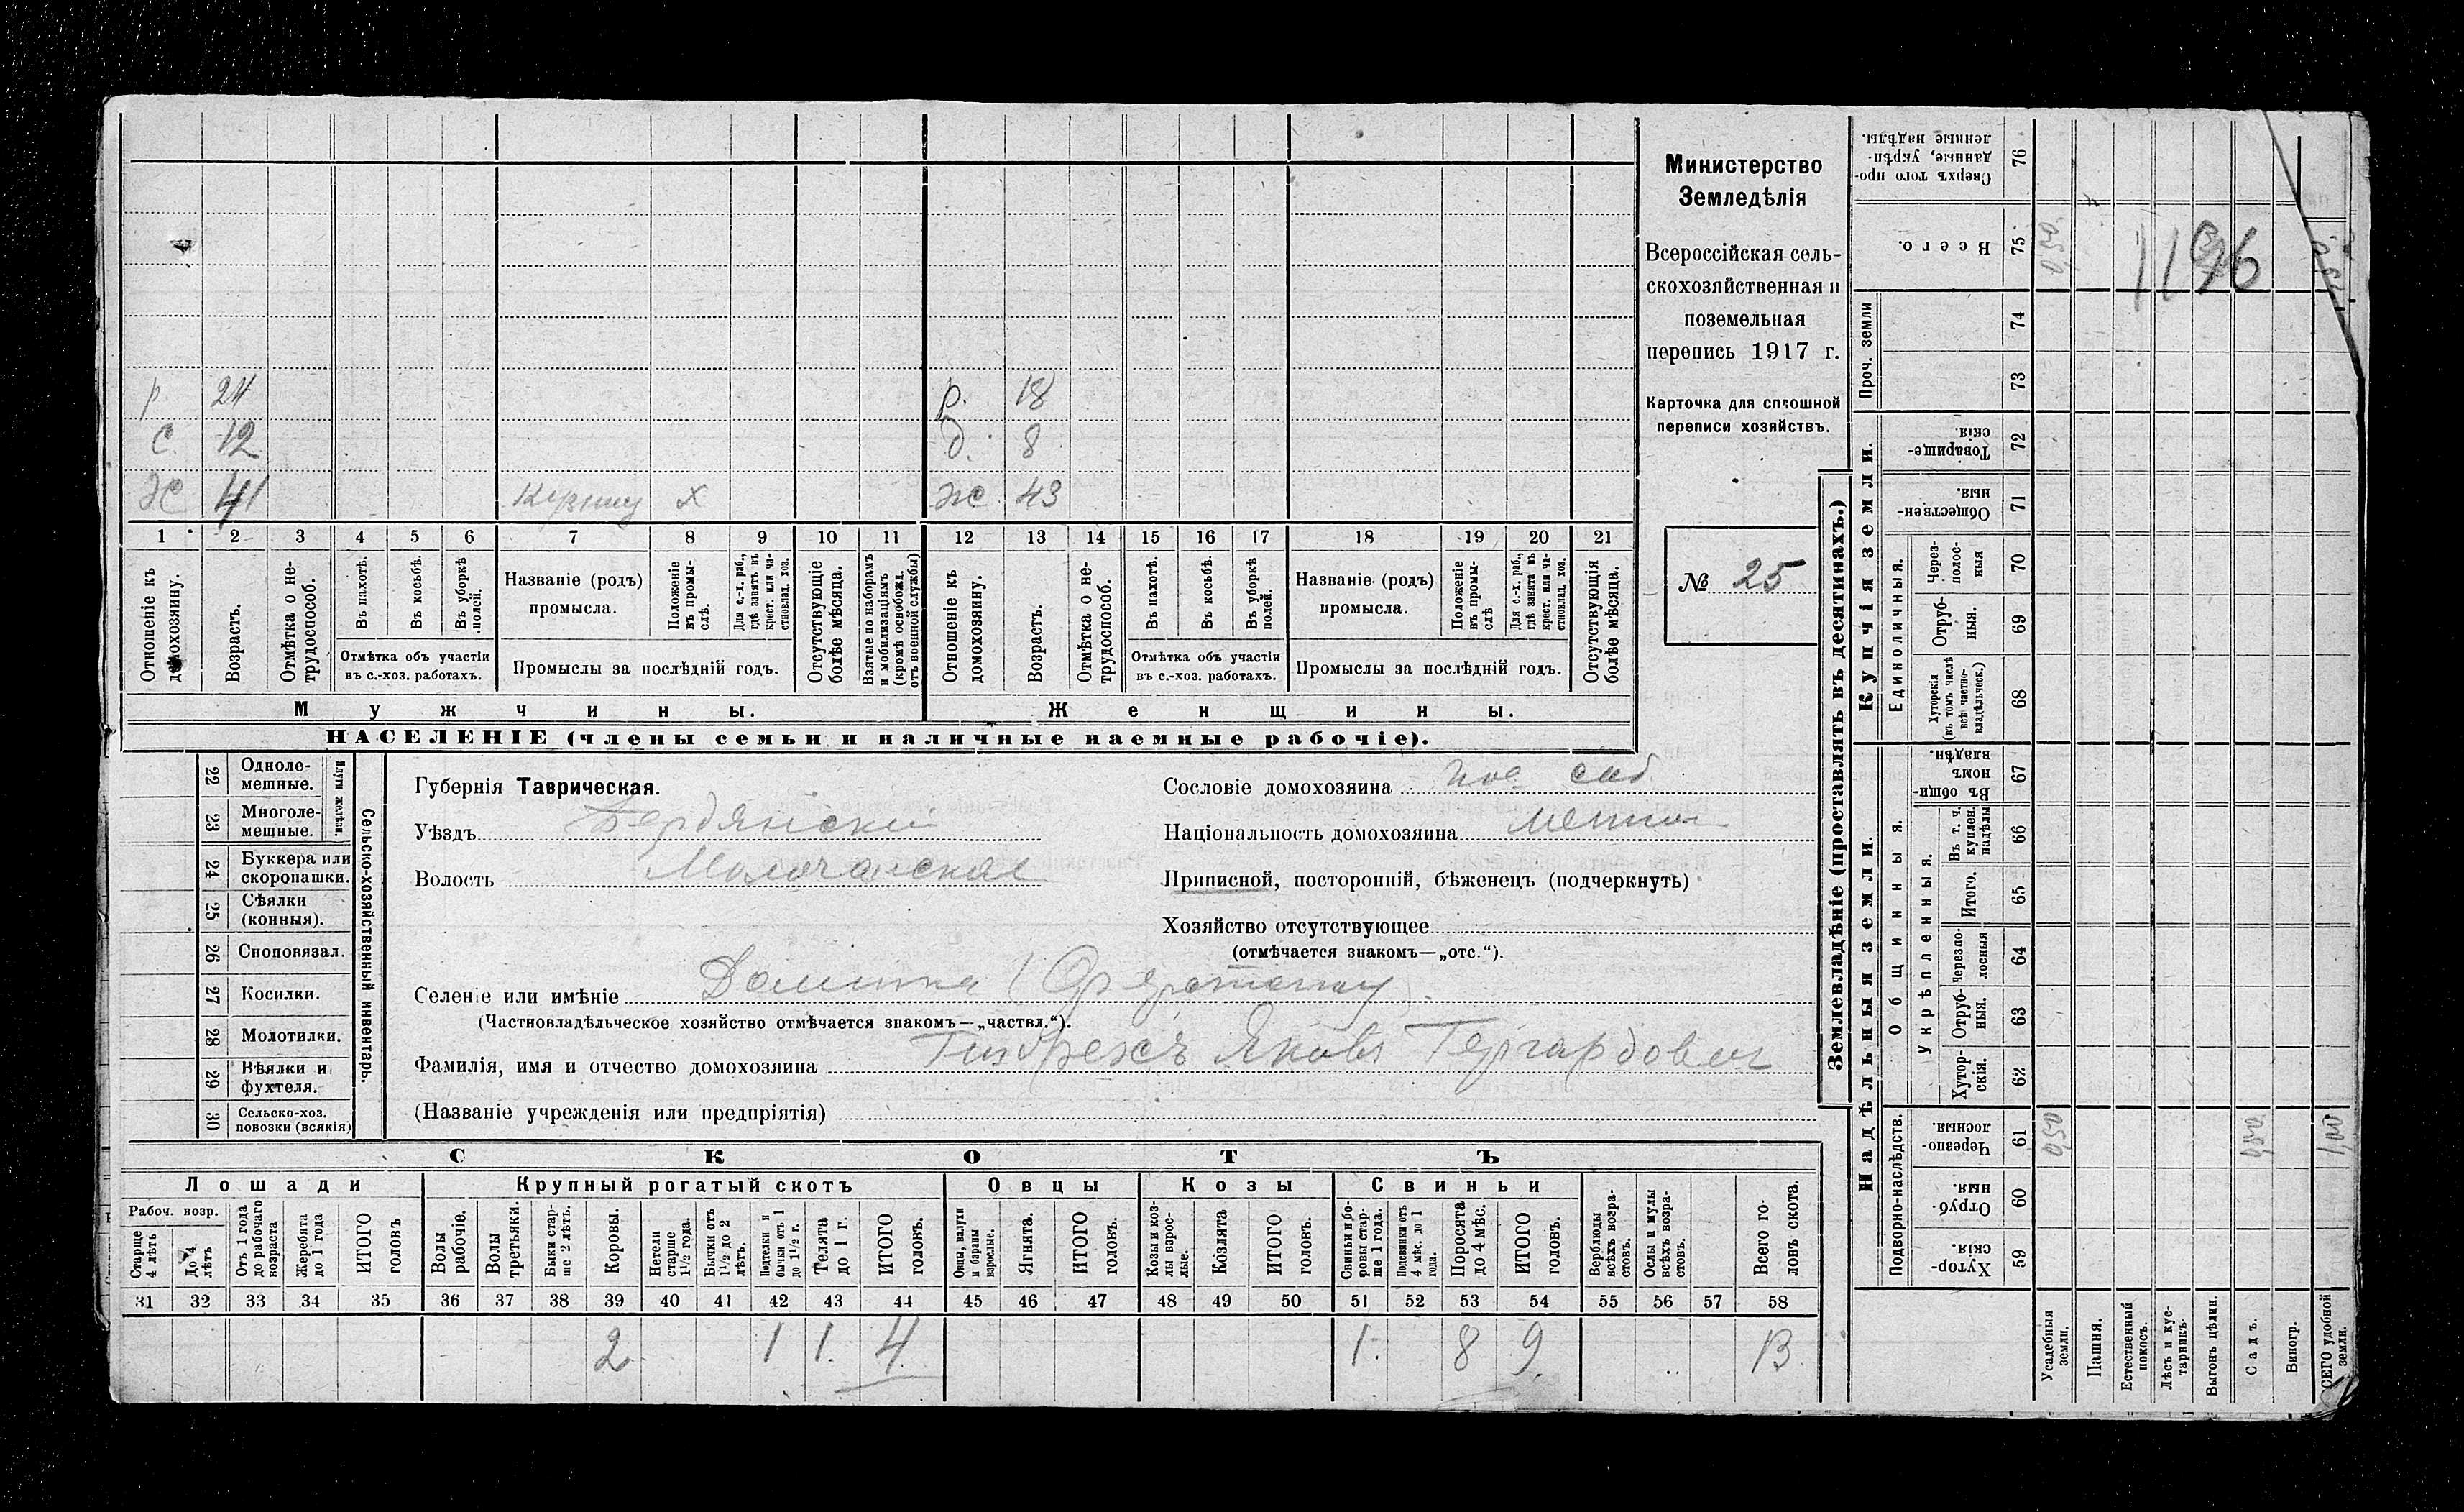 Министерство
Земледѣлія
Всероссійская сель-
скохозяйственная и
поземельная
перепись 1917 г.
Карточка для сплошной
переписи хозяйствъ.
№ 25
р 24 р. 18
с 12 д. 8
Ж 41 х Ж 43
1 2 3 4 5 6 7 8 9 10 11 12 13 14 15 16 17 18 19 20 21
Отношеніе къ домохозяину.
Возрастъ.
Отмѣтка о не-трудоспособ.
Въ пахотѣ.
Въ косьбѣ.
Въ уборкѣ полей.
Отмѣтка объ участіи
въ с.-хоз. работахъ.
Названіе (родъ)
промысла.
Положеніе въ промы-слѣ.
Для с.-х. раб., гдѣ занятъ въ крест. или ча-стновлад. хоз.
Промыслы за послѣдній годъ.
Отсутствующіе болѣе мѣсяца.
Взятые по наборамъ и мобилизаціямъ (кромѣ освобожд. отъ военной службы)
Отношеніе къ домохозяину.
Возрастъ.
Отмѣтка о не-трудоспособ.
Въ пахотѣ.
Въ косьбѣ.
Въ уборкѣ полей.
Отмѣтка объ участіи
въ с.-хоз. работахъ.
Названіе (родъ)
промысла.
Положеніе въ промы-слѣ
Для с.-х. раб., гдѣ занята въ крест. или ча-стновлад. хоз.
Промыслы за послѣдній годъ.
Отсутствующія болѣе мѣсяца.
Мужчины. Женщины.
НАСЕЛЕНІЕ (члены семьи и наличные наемные рабочіе).
Сельско-хозяйственный инвентарь.
Плуги желѣзн.
22 Одноле-мешные.
23 Многоле-мешные.
24 Буккера или скоропашки.
25 Сѣялки (конныя).
26 Сноповязал.
27 Косилки.
28 Молотилки.
29 Вѣялки и фухтеля.
30 Сельско-хоз. повозки (всякія)
Губернія Таврическая.
Уѣздъ Бердянскій
Волость Молочанская
Сословіе домохозяина пос. соб
Національность домохозяина
Приписной, посторонній, бѣженецъ (подчеркнуть)
Хозяйство отсутствующее
(отмѣчается знакомъ—„отс.“).
Селеніе или имѣніе
(Частновладѣльческое хозяйство отмѣчается знакомъ—„частвл.“).
Фамилія, имя и отчество домохозяина Гизбрехтъ Яковъ Гергардович
(Названіе учрежденія или предпріятія)
СКОТЪ
Лошади Крупный рогатый скотъ Овцы Козы Свиньи
Рабоч. возр.
Старше 4 лѣтъ
До 4 лѣтъ
Отъ 1 года до рабочаго возраста
Жеребята до 1 года
ИТОГО головъ
Волы рабочіе.
Волы третьяки.
Быки стар-ше 2 лѣтъ.
Коровы.
Нетели старше 1½ года.
Бычки отъ 1½ до 2 лѣтъ.
Подтелки и бычки отъ 1 до 1½ г.
Телята до 1 г.
ИТОГО головъ.
Овцы, валухи и бараны взрослые.
Ягнята.
ИТОГО головъ.
Козы и коз-лы взрос-лые.
Козлята
ИТОГО головъ.
Свиньи и бо-ровы стар-ше 1 года.
Подсвинки отъ 4 мѣс. до 1 года.
Поросята до 4 мѣс.
ИТОГО головъ.
Верблюды всѣхъ возра-стовъ.
Ослы и мулы всѣхъ возра-стовъ.
Всего го-ловъ скота.
31 32 33 34 35 36 37 38 39 40 41 42 43 44 45 46 47 48 49 50 51 52 53 54 55 56 57 58
2 1 1. 4 1. 8 9 13.
Землевладѣніе (проставлять въ десятинахъ.)
Надѣльныя земли. Купчія земли.
Сверхъ того про-данные, укрѣп-ленные надѣлы. 76
Всего. 75 0,50 1196
Проч. земли 74
73
Товарище-скія. 72
Обществен-ныя. 71
Единоличныя.
Через-полос-ныя 70
Отруб-ныя. 69
Хуторскія (въ томъ числѣ всѣ частно-владѣльческ.) 68
Общинныя.
Въ общи-номъ владѣн. 67
Укрѣпленныя.
Въ т. ч. куплен. надѣлы 66
Итого. 65
Черезпо-лосныя 64
Отруб-ныя. 63
Хутор-скія. 62
Подворно-наслѣдств.
Черезпо-лосныя. 61 0,50 0,50 1,00
Отруб-ныя. 60
Хутор-скія. 59
Усадебныя земли.
Пашня.
Естественный покосъ.
Лѣсъ и кус-тарникъ
Выгонъ цѣлин.
Садъ.
Виногр.
СЕГО удобной земли.